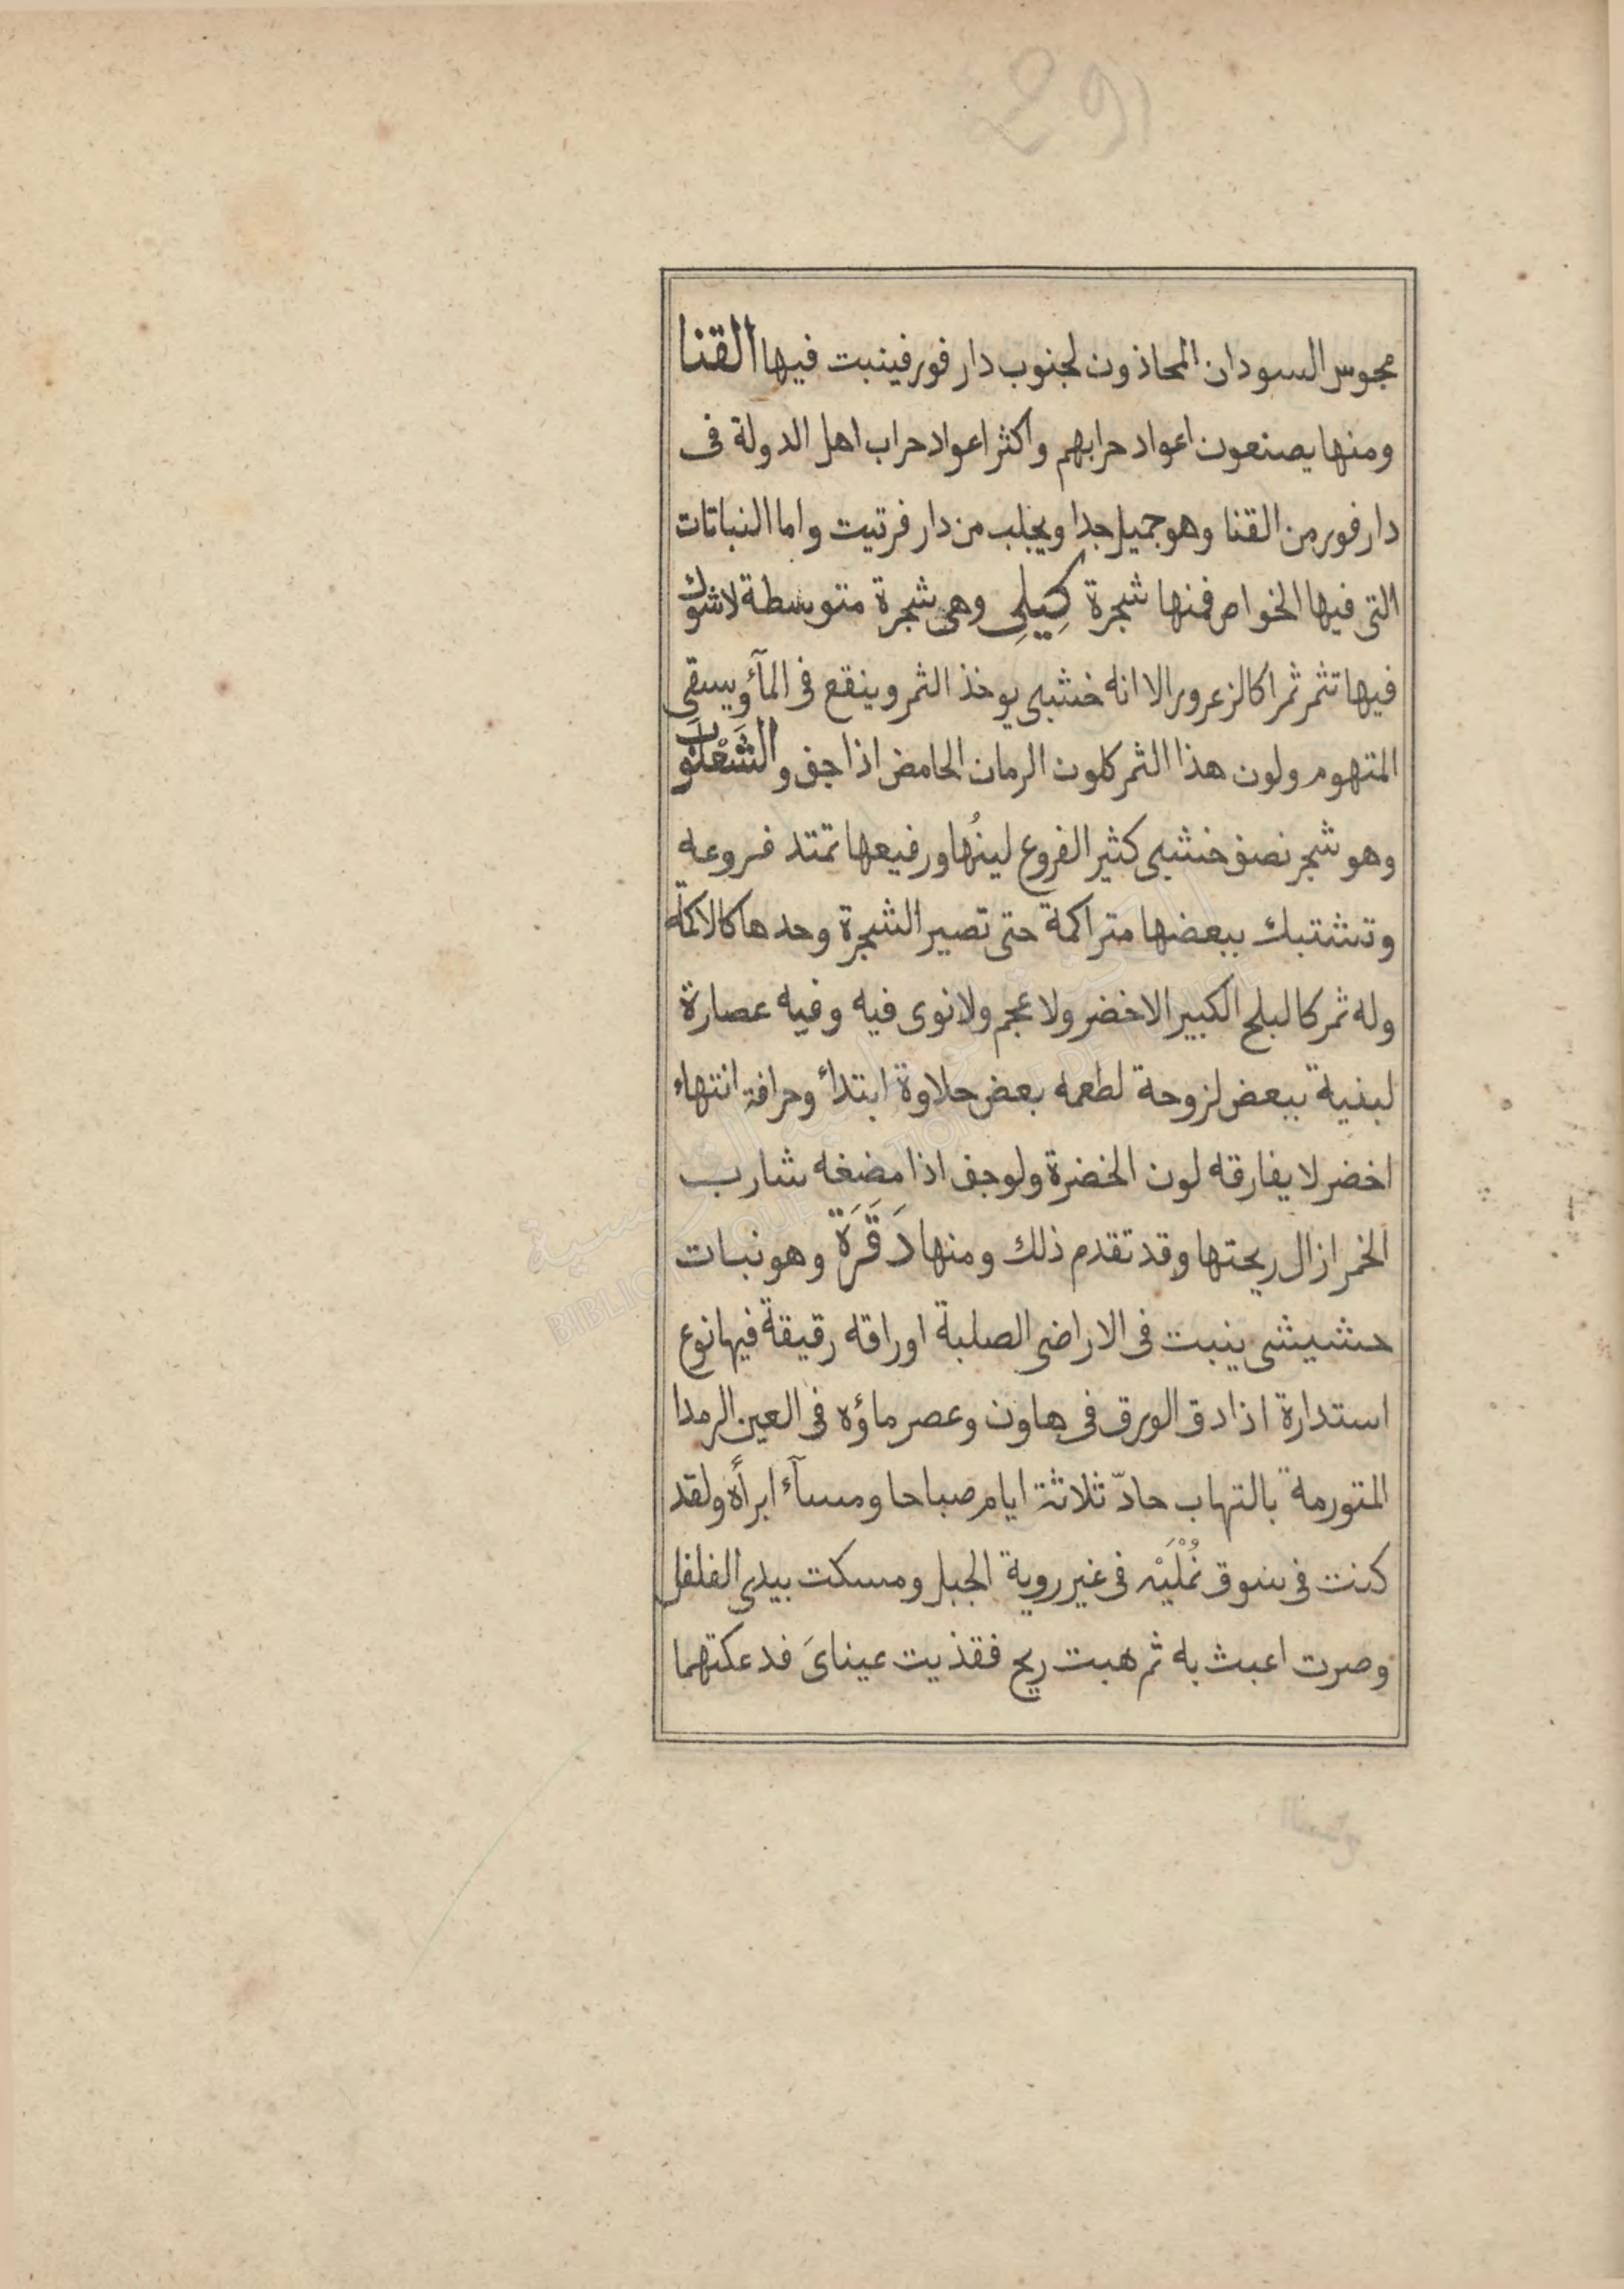 مجوس السودان المحاذون لجنوب دار فور فينبت فيها القنا
ومنها يصنعون اعواد حرابهم واكثر اعواد حراب اهل الدولة فى
دار فور من القنا وهو جميل جدا ويجلب من دار فرتيت واما النباتات
التى فيها الخواص فمنها شجرة كِيلِى وهى شجرة متوسطة لاشوك
فيها تثمر ثمرا كالزعرور الا انه خشبى يوخذ الثمر وينقع فى المآء ويسقى
المتهوم ولون هذا الثمر كلون الرمان الحامض اذا جف والشَعْلُوَب
وهو شجر نصف خشبى كثير الفروع لينُها ورفيعها تمتد فروعه
وتشتبك ببعضها متراكمة حتى تصير الشجرة وحدها كالاكمة
وله ثمر كالبلح الكبير الاخضر ولا عجم ولا نوى فيه وفيه عصارة
لبنية ببعض لزوحة لطعمه بعض حلاوة ابتدأ وحرافة انتهاء
اخضر لا يفارقه لون الخضرة ولوجف اذا مضغه شارب
الخمر ازال ريحتها وقد تقدم ذلك ومنها دَقَرَة وهو نبات
حشيشى ينبت فى الاراضى الصلبة اوراقه رقيقة فيها نوع
استدارة اذا دق الورق فى هاون وعصر ماؤه فى العين الرمدا
المتورمة بالتهاب حادّ ثلاثة ايام صباحا ومسآء ابرأه ولقد
كنت فى سوق نُمْلَيْه فى غير روية الجبل ومسكت بيدى الفلفل
وصرت اعبث به ثم هبت ريح فقذيت عيناىَ فدعكتهما
BIBLIOTHEQUE NATIONALE DE FRANCE